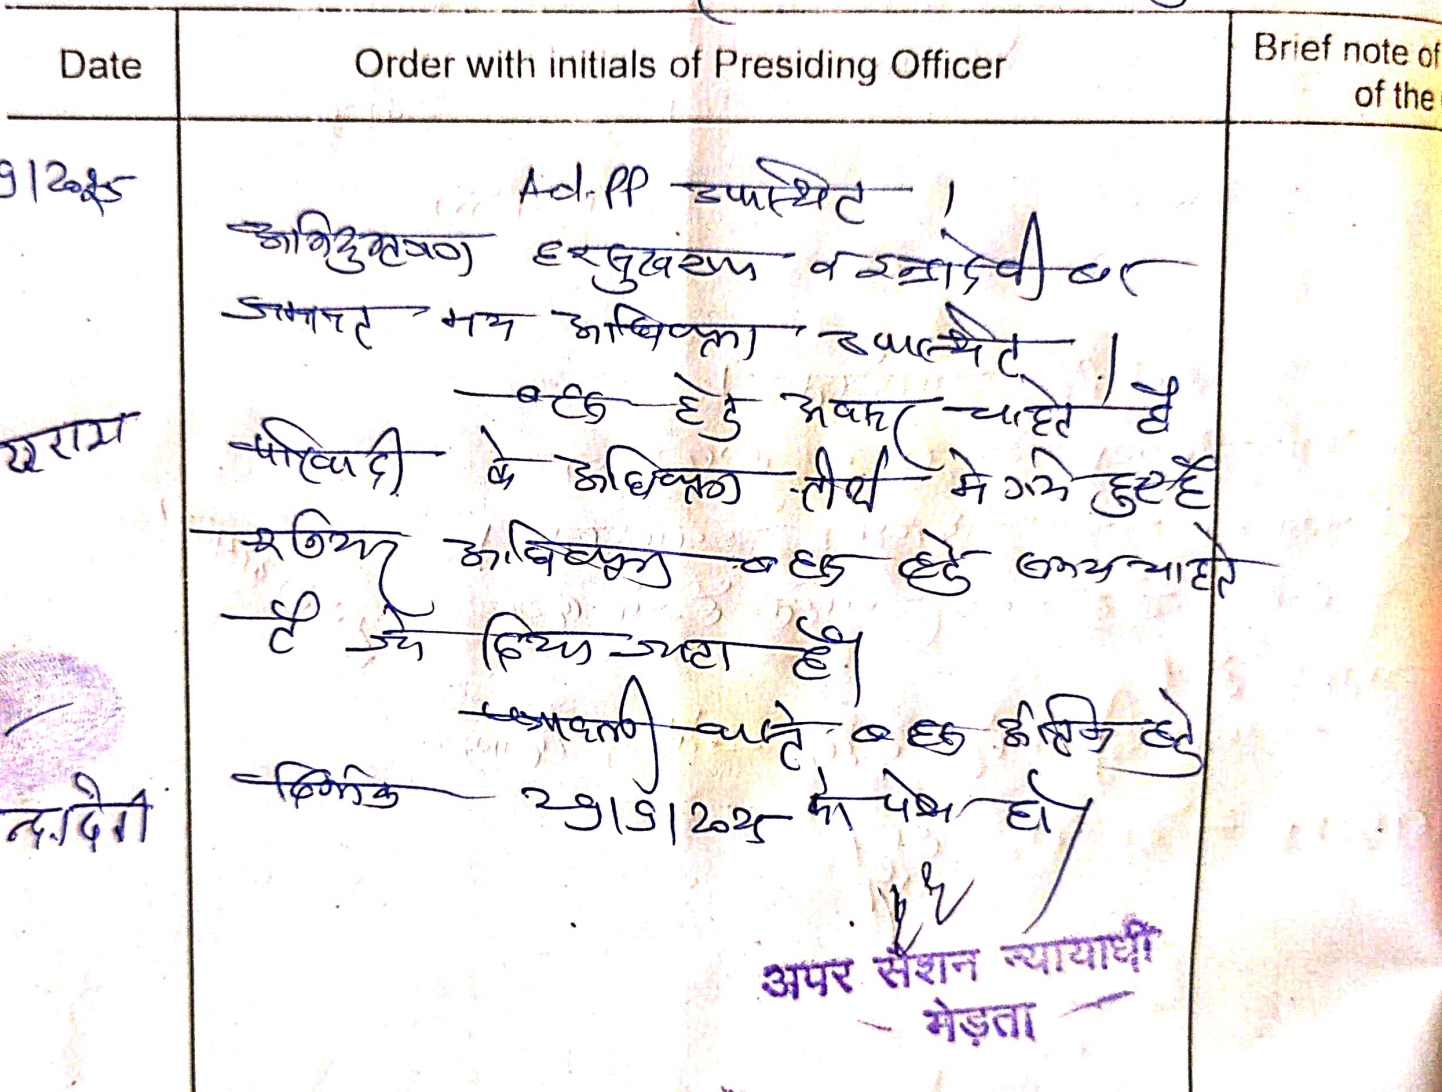 Date Order with initials of Presiding Officer Brief note of
of the
9/2025 Ad. PP उपस्थित ।
अभियुक्तगण हरसुखराम व इन्द्रादेवी बर
जमानत मय अधिवक्ता उपस्थित ।
बहस हेतु अवसर चाहते है
परिवादी के अधिवक्ता तीर्थ मे गये हुए है
अधिवक्ता बहस हेतु समय चाहते
है जो दिया जाता है।
पत्रावली वास्ते बहस अंतिम हेतु
दिनांक 29/9/2025 को पेश हो।
न्द्रादेवी
अपर सेशन न्यायाधी
मेड़ता